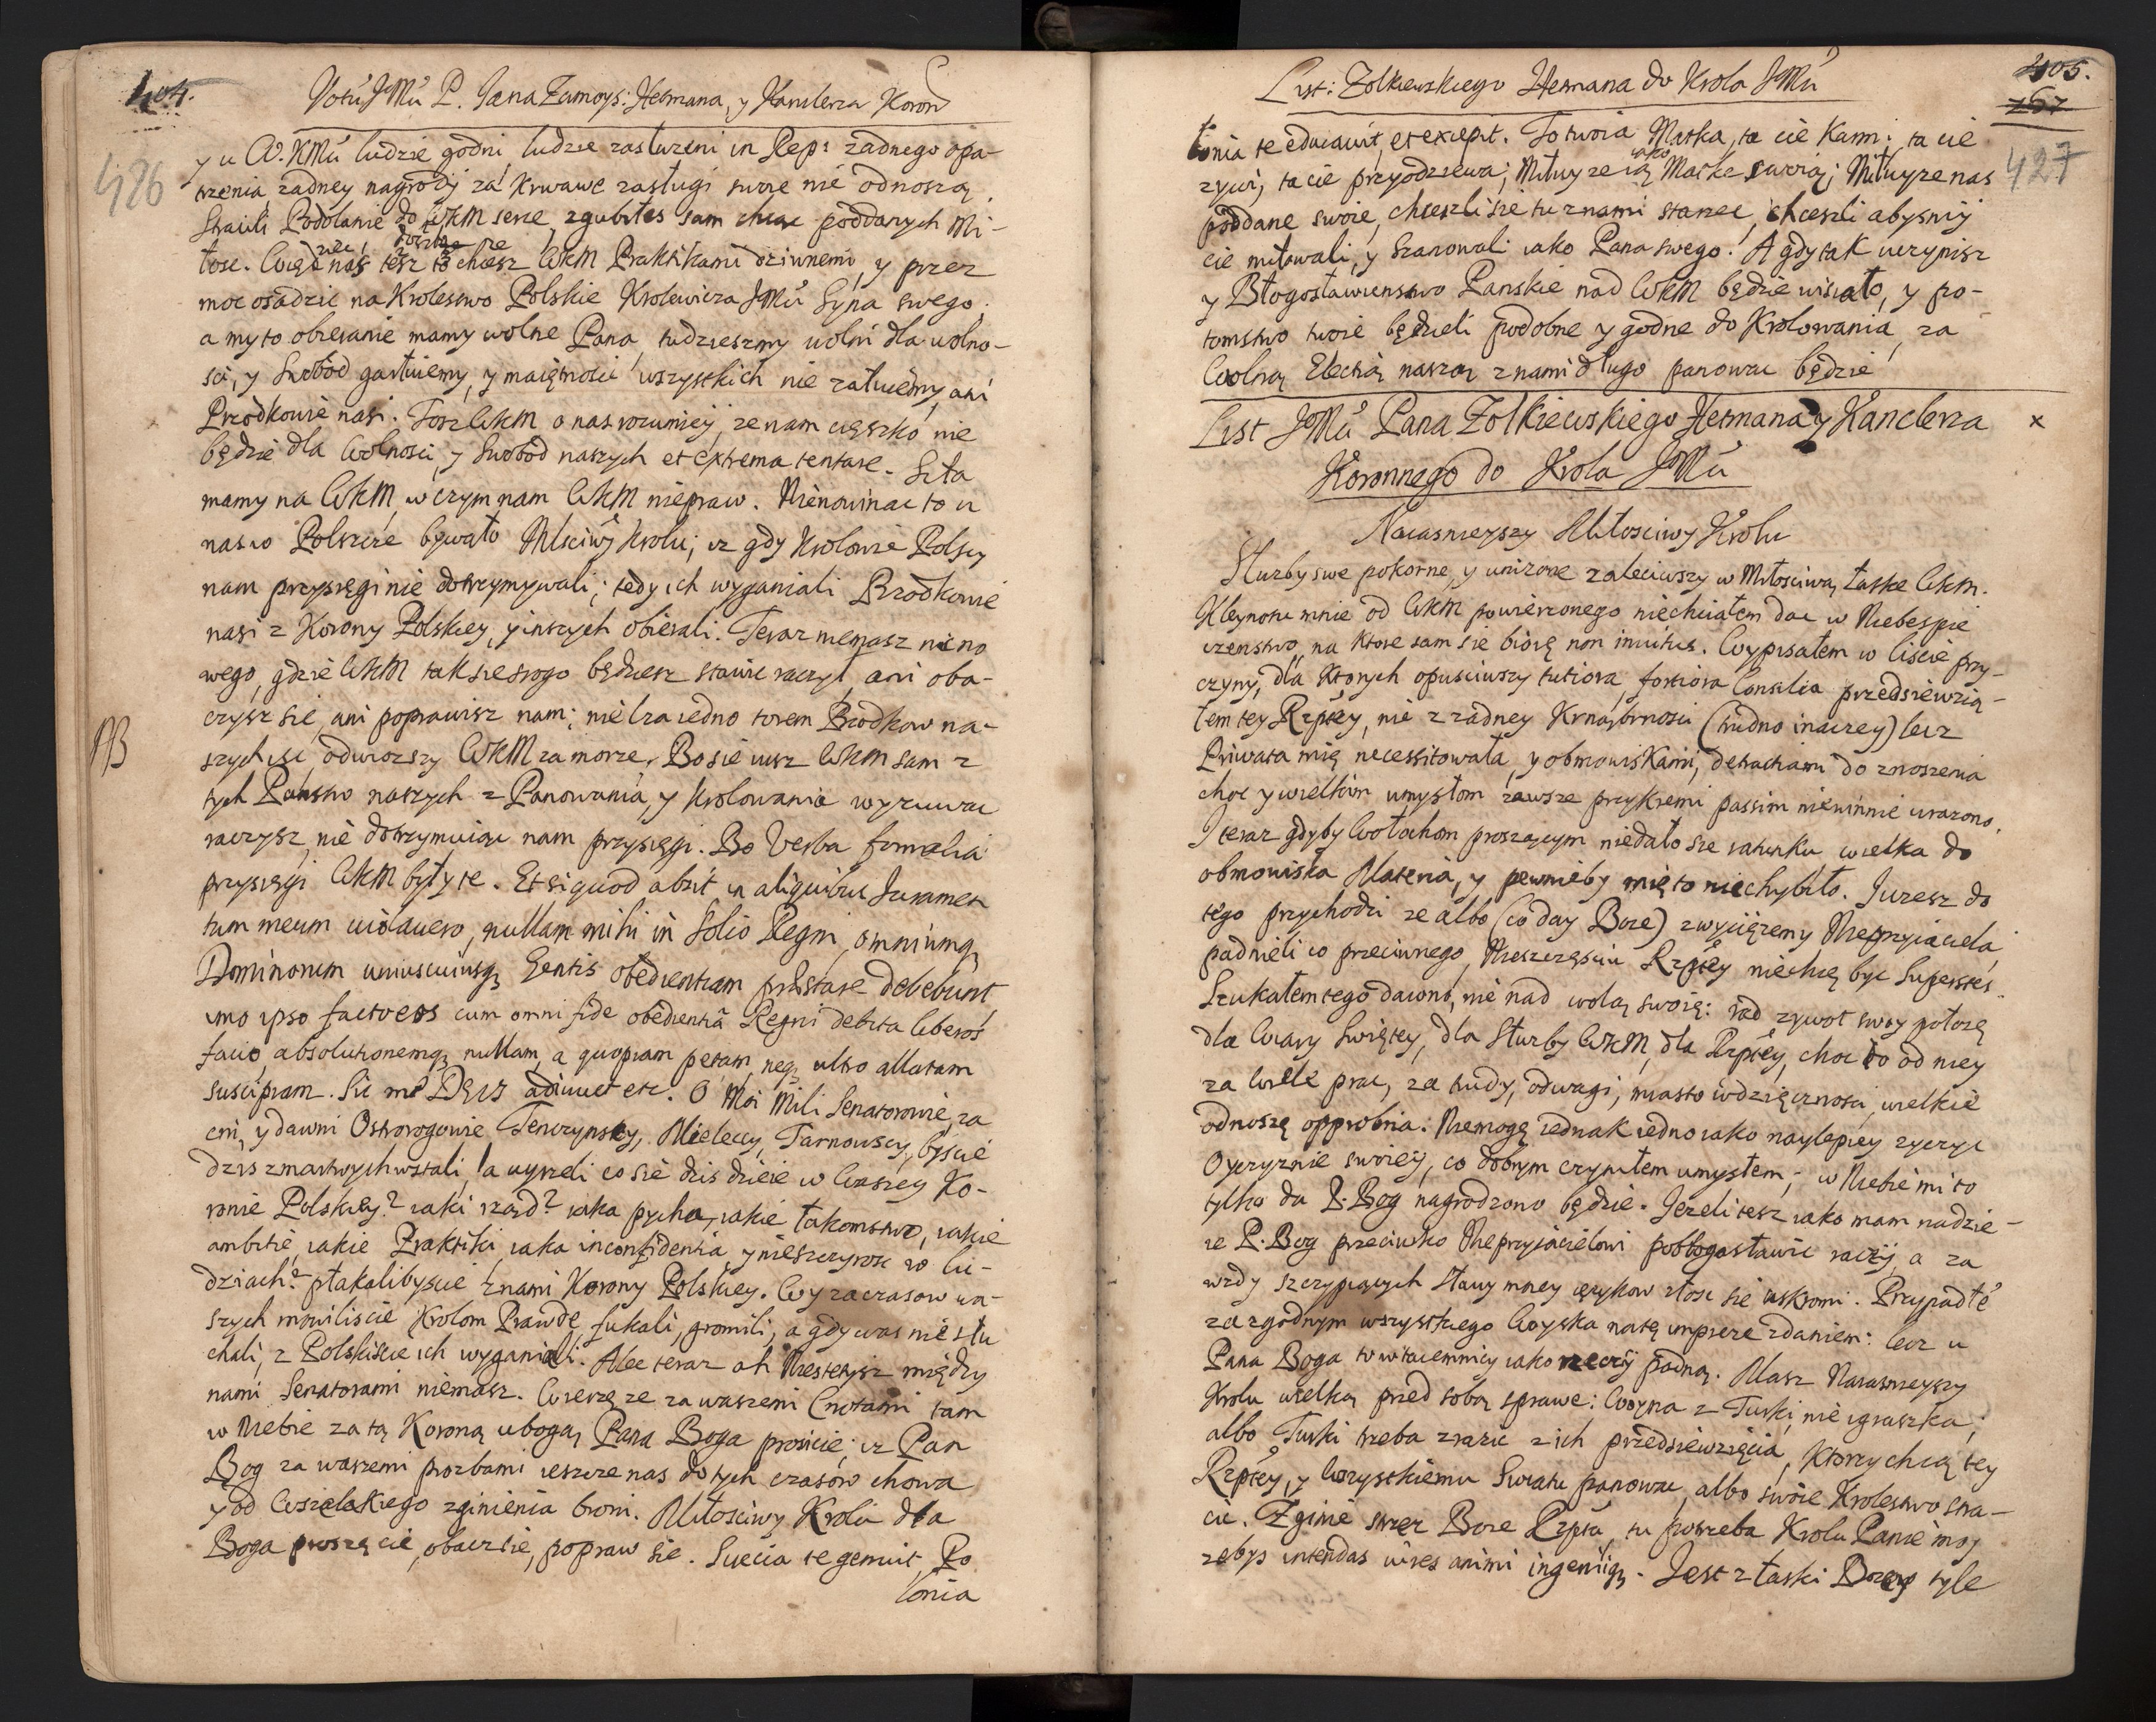 404.
426
Votu JMu P. Jana Zamoys: Hetmana, y Kanclerza Koron
y u W.KMu ludzie godni, ludzie zasłuzeni in Rep: zadnego opa-
trzenia, zadney nagrody za krwawe zasługi swoie nie odnoszą.
Straciłi Podolanie do WKM serce, zgubiłes sam chcąc poddanych Mi-
łosc. Cięd nas tesz to chcesz WKM Praktikami dziwnemi, y przez
moc osadzic na Krolestwo Polskie Krolewicza JMu Syna swego.
a my to obieranie mamy wolne Pana, tudzieszmy wolni dla wolno-
sci, y Swobod gardłuiemy, y maiętnosci wszystkich nie załuiemy, ani
Przodkowie nasi. Tosz WKM o nas rozumiey, ze nam cięszko nie
będzie dla Wolnosci, y Swobod naszych et extrema tentare. Siła
mamy na WKM, w czym nam WKM niepraw. Nienowinac to u
nas w Polszcze bywało Miłsciwy Krolu; iz gdy Krolowie Polscy
nam przysięgi nie dotrzymywali; tedy ich wyganiali Przodkowie
nasi z Korony Polskiey, y inszych obierali. Teraz niemasz nic no
wego, gdzie WKM tak sie srogo będziesz stawic raczył, ani oba-
czysz sie, ani poprawisz nam; nie lza iedno torem Przodkow na-
NB
szych isc, odwiozszy WKM za morze. Bo sie iusz WKM sam z
tych Panstw naszych z Panowania, y Krolowania wyzuwac
raczysz, nie dotrzymuiąc nam przysięgi. Bo Verba formalia
przysięgi WKM były te. Et si quod absit in aliquibus Juramen
tum meum violavero, nullam mihi in Solio Regni, omniumq
Dominorum uniuscuiusq Gentis obedientiam præstare debebunt
imo ipso facto eos cum omni fide obedientiâ Regni debita liberos
facio, absolutionemq nullam, a quopiam petam, neq ultro allatam
suscipiam. Sic me Deus adiuvet etc. O Moi Mili Senatorowie, za
cni, y dawni Ostrorogowie, Tenczynscy, Mieleccy, Tarnowscy, byscie
dzis zmartwychwstali, a uyrzeli co sie dzis dzieie w Waszey Ko-
ronie Polskiey? iaki rząd? iaka pycha, iakie łakomstwo, iakie
ambitie, iakie Praktiki, iaka inconfidentia, y nieszczyrosc w lu-
dziach? płakalibyscie z nami Korony Polskiey. Wy za czasow wa-
szych mowiliscie Krolom Prawdę, fukali, gromili, a gdy was nie słu
chali, z Polskiscie ich wyganiali. Ale teraz ah Niestetysz między
nami Senatorami niemasz. Wierzę ze za waszemi Cnotami tam
w Niebie za tą Koroną ubogą Pana Boga prosicie; iz Pan
Bog za waszemi prozbami ieszcze nas do tych czasow chowa
y od Wszelakiego zginienia broni. Miłosciwy Krolu dla
Boga proszę cie, obacz sie, popraw sie. Suecia te genuit, Po
lonia
405.
267
427
List: Zolkiewskiego Hetmana do Krola JMu
lonia te educavit, et excepit. To twoia Matka, ta cie Karmi, ta cie
zywi, ta cie przyodziewa; Miłuyze ią iako Matkę swoią; Miłuyze nas
poddane swoie, chceszli sie tu z nami starzec, chceszli abysmy
cie miłowali, y szanowali iako Pana swego. A gdy tak uczynisz
y Błogosławienstwo Panskie nad WKM będzie wisiało, y po-
tomstwo twoie będzieli podobne y godne do Krolowania, za
Wolną Elekcią naszą z nami długo panowac będzie
List JMu Pana Zolkiewskiego Hetmana y Kanclerza x
Koronnego do Krola JMu
Naiasnieyszy Miłosciwy Krolu
Słuzby swe pokorne, y unizone zaleciwszy w Miłosciwą łaskę WKM.
Kleynotu mnie od WKM powierzonego niechciałem dac w Niebespie
czenstwo, na ktore sam sie biorę non invitus. Wypisałem w liscie przy-
czyny, dla Ktorych opusciwszy tutiora, fortiora Consilia przedsiewzią-
łem tey Rzptey, nie z zadney Krnąbrnosci (trudno inaczey) lecz
Privata mię necessitowała, y obmowiskami, detractiami do znoszenia
choc y wielkim umysłom zawsze przykremi passim niewinnie urazono.
I teraz gdyby Wołochom proszącym niedało sie ratunku, wielka do
obmowiska Materia, y pewnieby mię to niechybiło. Iuzesz do
tego przychodzi ze albo (co day Boze) zwyciężemy Nieprzyiaciela,
padnieli co przeciwnego, Nieszczęsciu Rzptey niechcę byc Superstes.
Szukałem tego dawno, nie nad wolą swoię: rad zywot swoy położę
dla Wiary Swiętey, dla Słuzby WKM, dla Rzptey, choc to od niey
za wiele prac, za trudy, odwagi, miasto wdzięcznosci, wielkie
odnoszę opprobria. Niemogę iednak iedno iako naylepiey zyczyc
Oyczyznie swoiey, co dobrym czyniłem umysłem; w Niebie mi to
tylko da P. Bog nagrodzono będzie. Jezeli tesz iako mam nadzie-
ie P. Bog przeciwko Nieprzyiacielowi pobłogosławic raczy, a za
wzdy szczypiących sławy mney ięzykow złosc sie uskromi. Przypadłe
za zgodnym wszystkiego Woyska na tę imprezę zdaniem: lecz u
Pana Boga to w taiemnicy iako rzeczy padną. Masz Naiasnieyszy
Krolu wielką przed sobą sprawę: Woyna z Turki nie igraszka;
albo Turki trzeba zrazic z ich przedsiewzięcia, Ktorzy chcą tey
Rzptey, y Wszystkiemu Swiatu panowac, albo swoie Krolestwo stra-
cic. Zginie strzez Boze Rzpta, tu potrzeba Krolu Panie moy
zebys intendas vires animi ingeniiq. Jest z łaski Bozey tyle